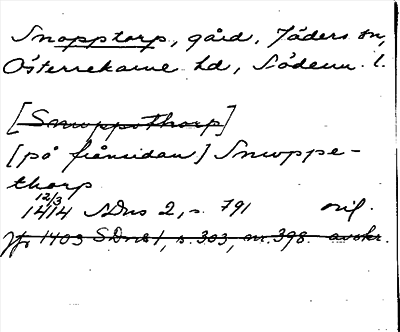 Snopptorp, gård, Jäders sn,
Österrekarne hd, Söderm. l.
[Snwppothorp]
[på frånsidan] Snwppe-
thorp
12/3
1414 SDns 2, s. 791 oril.
Jfr 1403 SDns 1, s. 303, nr. 398. avskr.